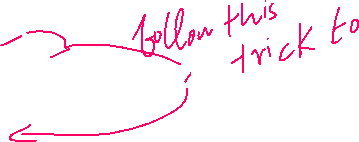 follow this
trick to